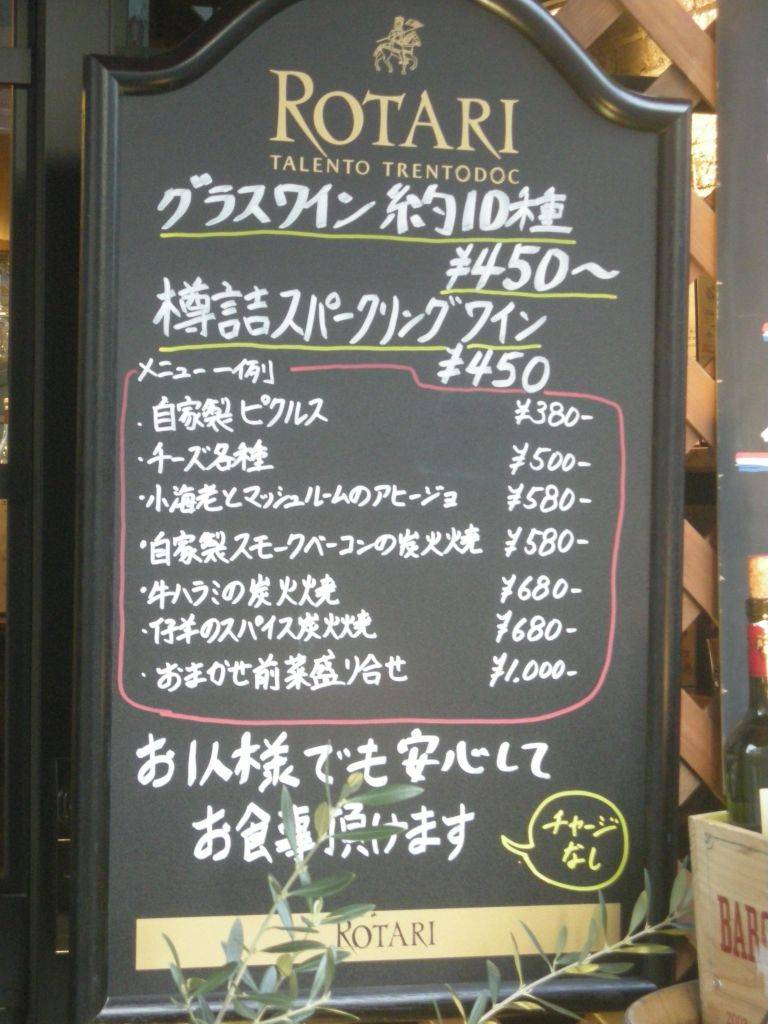 ROTARI
TALENTO TRENTODOC
グラスワイン 約10種
¥450〜
樽詰スパークリングワイン
¥450
メニュー 一例
・自家製ピクルス ¥380-
・チーズ各種 ¥500-
・小海老とマッシュルームのアヒージョ ¥580-
・自家製スモークベーコンの炭火焼 ¥580-
・牛ハラミの炭火焼 ¥680-
・仔羊のスパイス炭火焼 ¥680-
・おまかせ前菜盛り合せ ¥1.000-
お1人様でも安心して
お食事頂けます
チャージ
なし
ROTARI